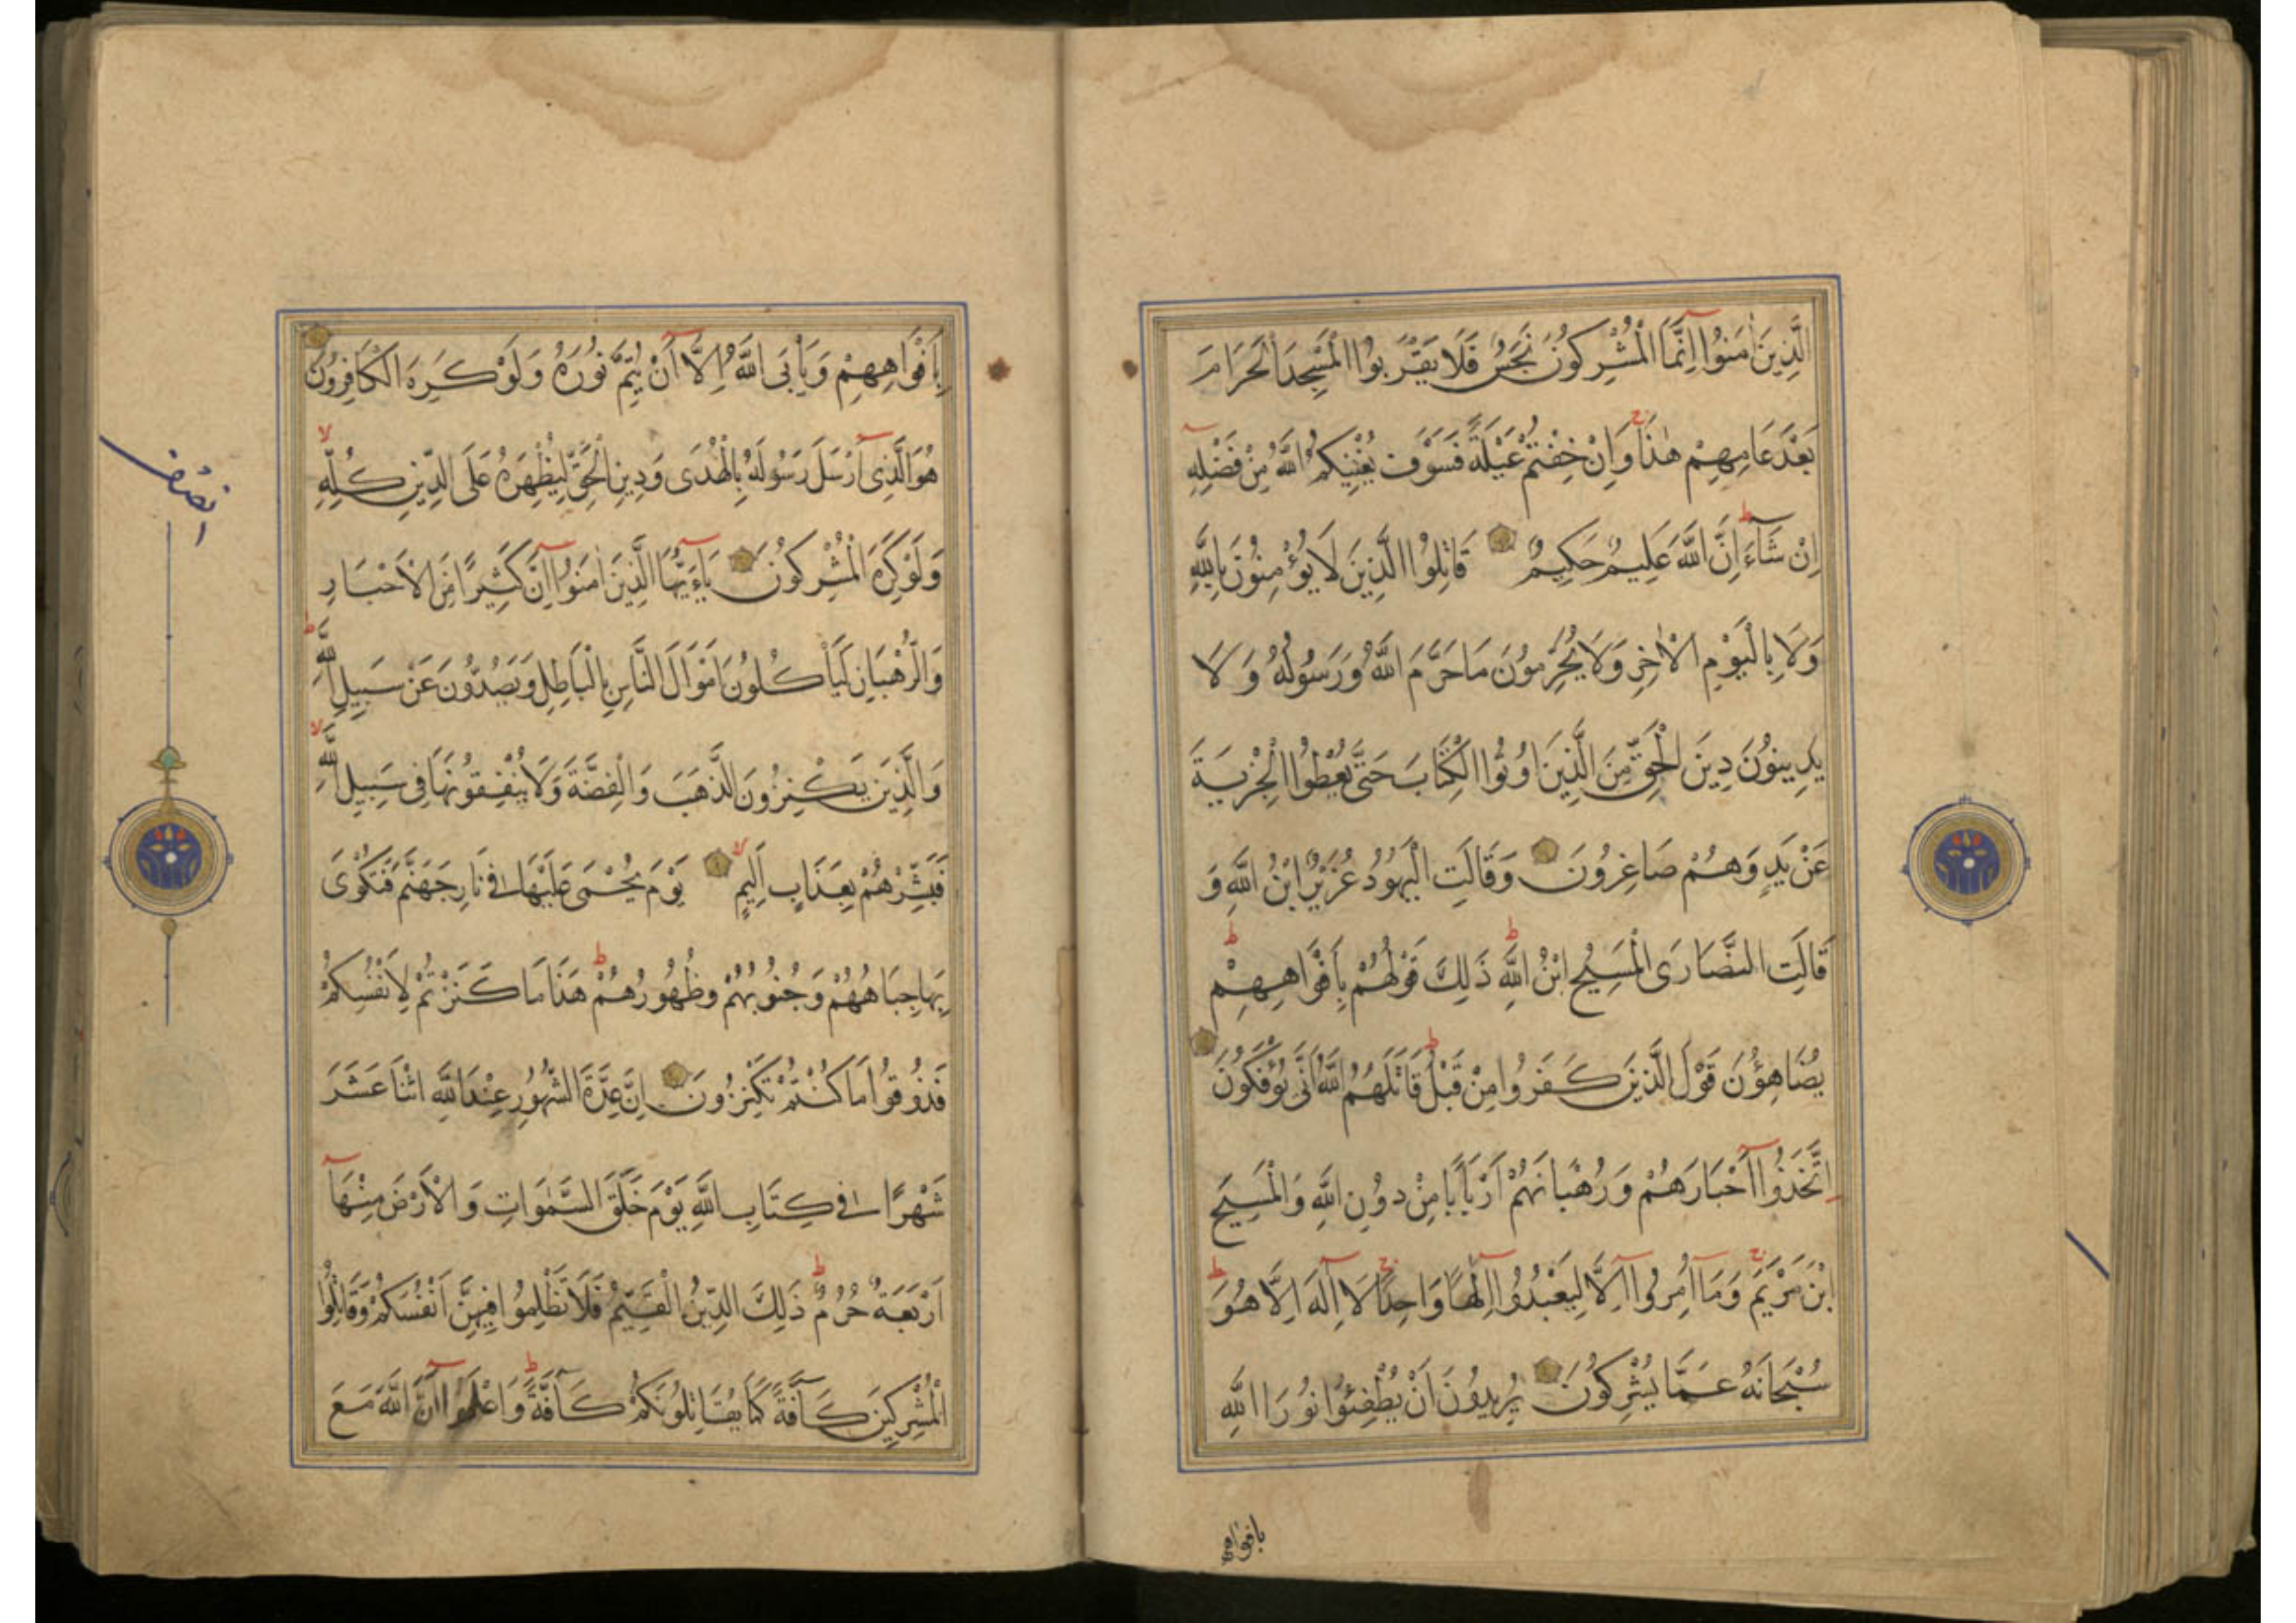 الَّذِينَ اٰمَنُوا اِنَّمَا الْمُشْرِكُونَ نَجَسٌ فَلَا يَقْرَبُوا الْمَسْجِدَ الْحَرَامَ
بَعْدَ عَامِهِمْ هٰذَا وَاِنْ خِفْتُمْ عَيْلَةً فَسَوْفَ يُغْنِيكُمُ اللّٰهُ مِنْ فَضْلِهِ
اِنْ شَآءَ اِنَّ اللّٰهَ عَلِيمٌ حَكِيمٌ قَاتِلُوا الَّذِينَ لَا يُؤْمِنُونَ بِاللّٰهِ
وَلَا بِالْيَوْمِ الْاٰخِرِ وَلَا يُحَرِّمُونَ مَا حَرَّمَ اللّٰهُ وَرَسُولُهُ وَلَا
يَدِينُونَ دِينَ الْحَقِّ مِنَ الَّذِينَ اُوتُوا الْكِتَابَ حَتَّى يُعْطُوا الْجِزْيَةَ
عَنْ يَدٍ وَهُمْ صَاغِرُونَ وَقَالَتِ الْيَهُودُ عُزَيْرٌ ابْنُ اللّٰهِ وَ
قَالَتِ النَّصَارَى الْمَسِيحُ ابْنُ اللّٰهِ ذَلِكَ قَوْلُهُمْ بِاَفْوَاهِهِمْ
يُضَاهِؤُنَ قَوْلَ الَّذِينَ كَفَرُوا مِنْ قَبْلُ قَاتَلَهُمُ اللّٰهُ اَنَّى يُؤْفَكُونَ
اِتَّخَذُوا اَحْبَارَهُمْ وَرُهْبَانَهُمْ اَرْبَابًا مِنْ دُونِ اللّٰهِ وَالْمَسِيحَ
ابْنَ مَرْيَمَ وَمَا اُمِرُوا اِلَّا لِيَعْبُدُوا اِلٰهًا وَاحِدًا لَا اِلٰهَ اِلَّا هُوَ
سُبْحَانَهُ عَمَّا يُشْرِكُونَ يُرِيدُونَ اَنْ يُطْفِئُوا نُورَ اللّٰهِ
بافواه
بِاَفْوَاهِهِمْ وَيَاْبَى اللّٰهُ اِلَّا اَنْ يُتِمَّ نُورَهُ وَلَوْ كَرِهَ الْكَافِرُونَ
هُوَ الَّذِى اَرْسَلَ رَسُولَهُ بِالْهُدَى وَدِينِ الْحَقِّ لِيُظْهِرَهُ عَلَى الدِّينِ كُلِّهِ
وَلَوْ كَرِهَ الْمُشْرِكُونَ يَاءَيُّهَا الَّذِينَ اٰمَنُوا اِنَّ كَثِيرًا مِنَ الْاَحْبَارِ
وَالرُّهْبَانِ لَيَاْكُلُونَ اَمْوَالَ النَّاسِ بِالْبَاطِلِ وَيَصُدُّونَ عَنْ سَبِيلِ اللّٰهِ
وَالَّذِينَ يَكْنِزُونَ الذَّهَبَ وَالْفِضَّةَ وَلَا يُنْفِقُونَهَا فِى سَبِيلِ اللّٰهِ
فَبَشِّرْهُمْ بِعَذَابٍ اَلِيمٍ يَوْمَ يُحْمَى عَلَيْهَا فِى نَارِ جَهَنَّمَ فَتُكْوَى
بِهَا جِبَاهُهُمْ وَجُنُوبُهُمْ وَظُهُورُهُمْ هَذَا مَا كَنَزْتُمْ لِاَنْفُسِكُمْ
فَذُوقُوا مَا كُنْتُمْ تَكْنِزُونَ اِنَّ عِدَّةَ الشُّهُورِ عِنْدَ اللّٰهِ اثْنَا عَشَرَ
شَهْرًا فِى كِتَابِ اللّٰهِ يَوْمَ خَلَقَ السَّمٰوَاتِ وَالْاَرْضَ مِنْهَا
اَرْبَعَةٌ حُرُمٌ ذَلِكَ الدِّينُ الْقَيِّمُ فَلَا تَظْلِمُوا فِيهِنَّ اَنْفُسَكُمْ وَقَاتِلُوا
الْمُشْرِكِينَ كَآفَّةً كَمَا يُقَاتِلُونَكُمْ كَآفَّةً وَاعْلَمُوا اَنَّ اللّٰهَ مَعَ